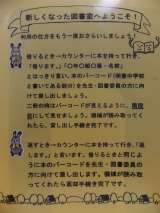 新しくなった図書室へようこそ!
利用の仕方をもう一度おさらいしましょう。
借りるとき→カウンターに本を持って行き、
「借ります」、「○年○組○番・名前」
とはっきり言い、本のバーコード(
と書いてある
の方に向けて差し出しましょう。
二冊の時はバーコードが見えるように、
に差し出してください。機械が読み取ってく
れたら、貸し出し手続き完了です。
返すとき→カウンターに本を持って行き、「返
します」と言います。借りるときと同じよう
に本のバーコードを先生・図書委員の
方に向けて差し出します。機械が読み取
ってくれたら返却手続き完了です。